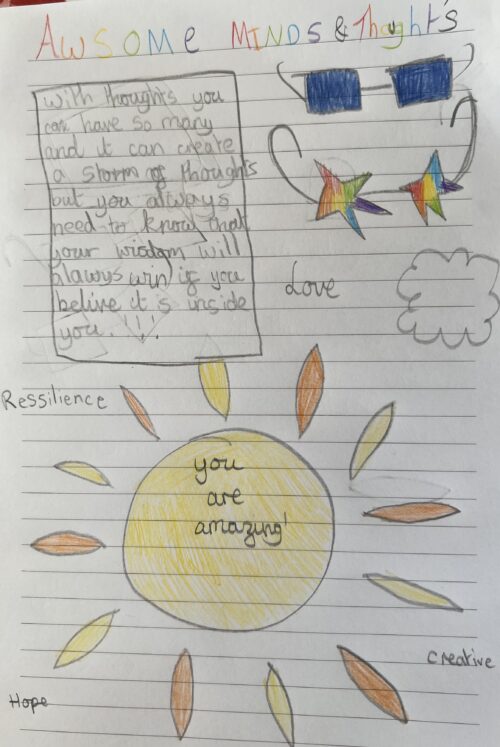 AWSOME MINDS & Thoght's
With thoughts you
can have so many
and it can create
a storm of thoughts
but you always
need to know that
your wisdom will
alawys win if you
belive it is inside
you. !!!
Love
Ressilience
you
are
amazing!
Creative
Hope